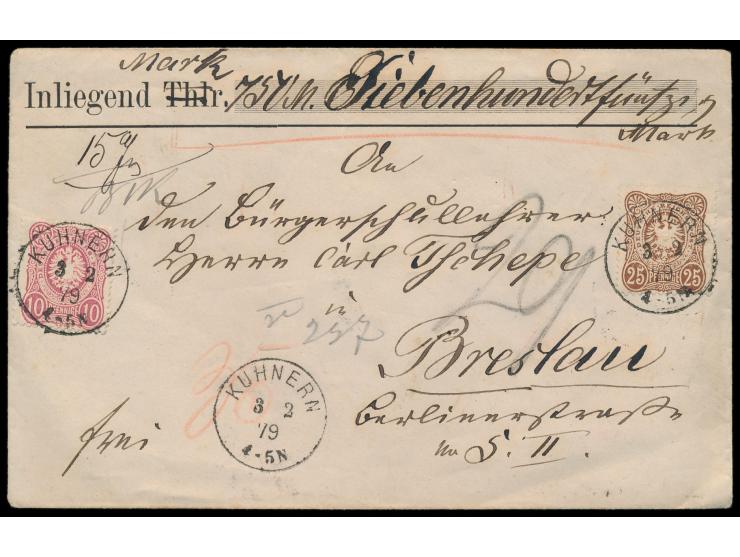 Mark
Inliegend Thlr. 750 M. Siebenhundertfünfzig
Mark
15 g
An
den Bürgerschullehrer
Herrn Carl Tschepe
in
Breslau
Berlinerstraße
No 5. II.
frei
29
237
30
KUHNERN
3 2
79
4-5N
10 PFENNIGE 10
KUHNERN
3 2
79
4-5N
25 PFENNIGE 25
KUHNERN
3 2
79
4-5N